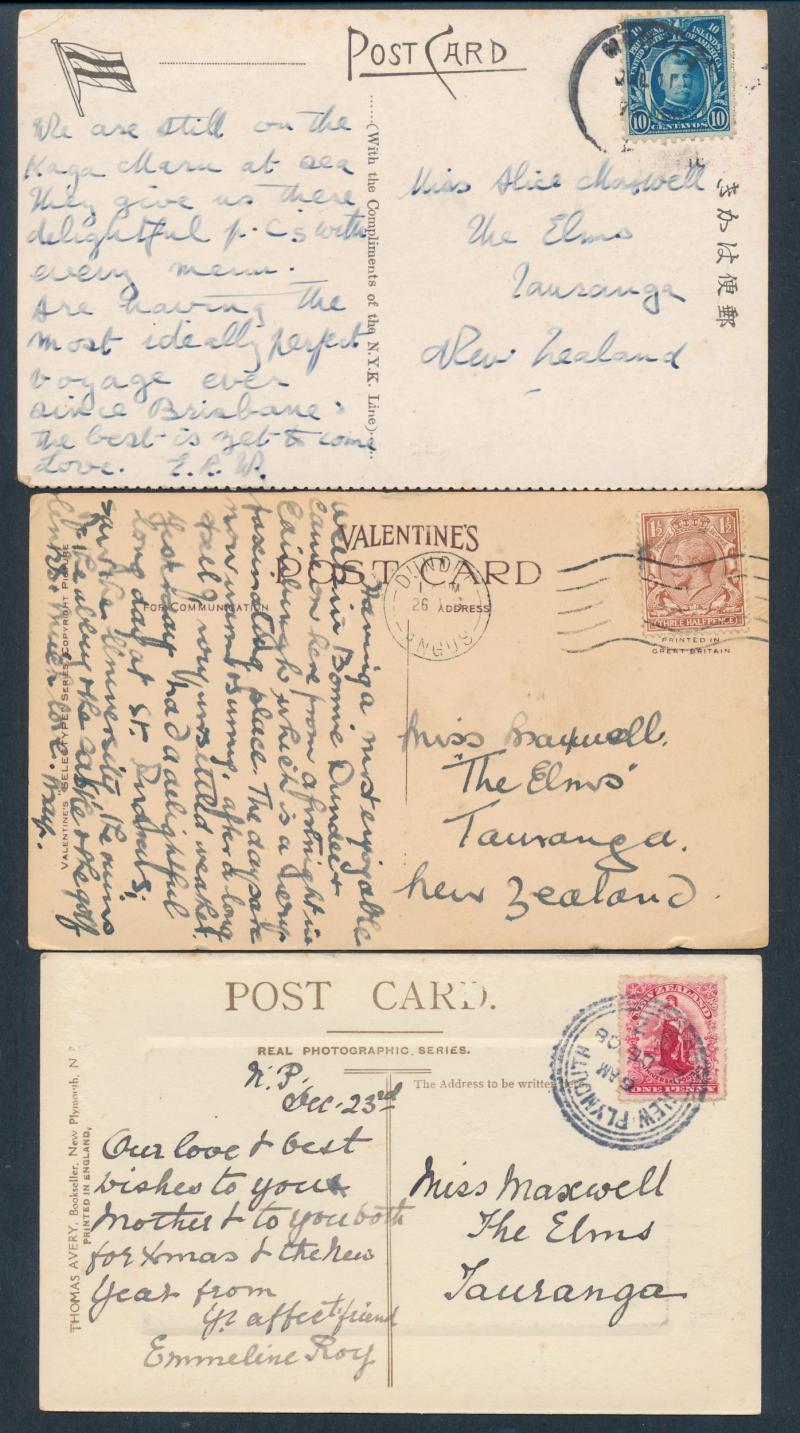 POST CARD
10 10
PHILIPPINE ISLANDS
UNITED STATES OF AMERICA
10 CENTAVOS 10
(With the Compliments of the N.Y.K. Line)
きかは便郵
We are still on the
Kaga Maru at sea
They give us these
delightful p.c's with
every menu.
Are having the
most ideally perfect
voyage ever
since Brisbane:
the best is yet to come
Love. E.R.W.
Miss Alice Maxwell
The Elms
Tauranga
New Zealand
VALENTINE'S
POST CARD
FOR COMMUNICATION
ADDRESS
DUNDEE
26
ANGUS
1½ 1½
THREE HALFPENCE
PRINTED IN
GREAT BRITAIN
VALENTINE'S "SELECTYPE" SERIES COPYRIGHT PICTURE
Having a most enjoyable
week in Bonnie Dundee &
came on here from a fortnight in
Edinburgh which is a very
fascinating place. The days are
now warm & sunny, after a long
spell of very unsettled weather.
Yesterday had a delightful
long day at St. Andrews,
saw the University, the ruins
of the abbey & the castle & the golf
links. Much love. May.
Miss Maxwell.
"The Elms"
Tauranga.
New Zealand.
POST CARD.
REAL PHOTOGRAPHIC SERIES.
The Address to be written here
NEW ZEALAND
ONE PENNY
NEW PLYMOUTH
5 AM
DE 08
THOMAS AVERY, Bookseller, New Plymouth, N.Z.
PRINTED IN ENGLAND,
N.P.
Dec. 23rd
Our love & best
wishes to your
Mother & to you both
for Xmas & the New
Year from
Yr affect. friend
Emmeline Roy
Miss Maxwell
The Elms
Tauranga